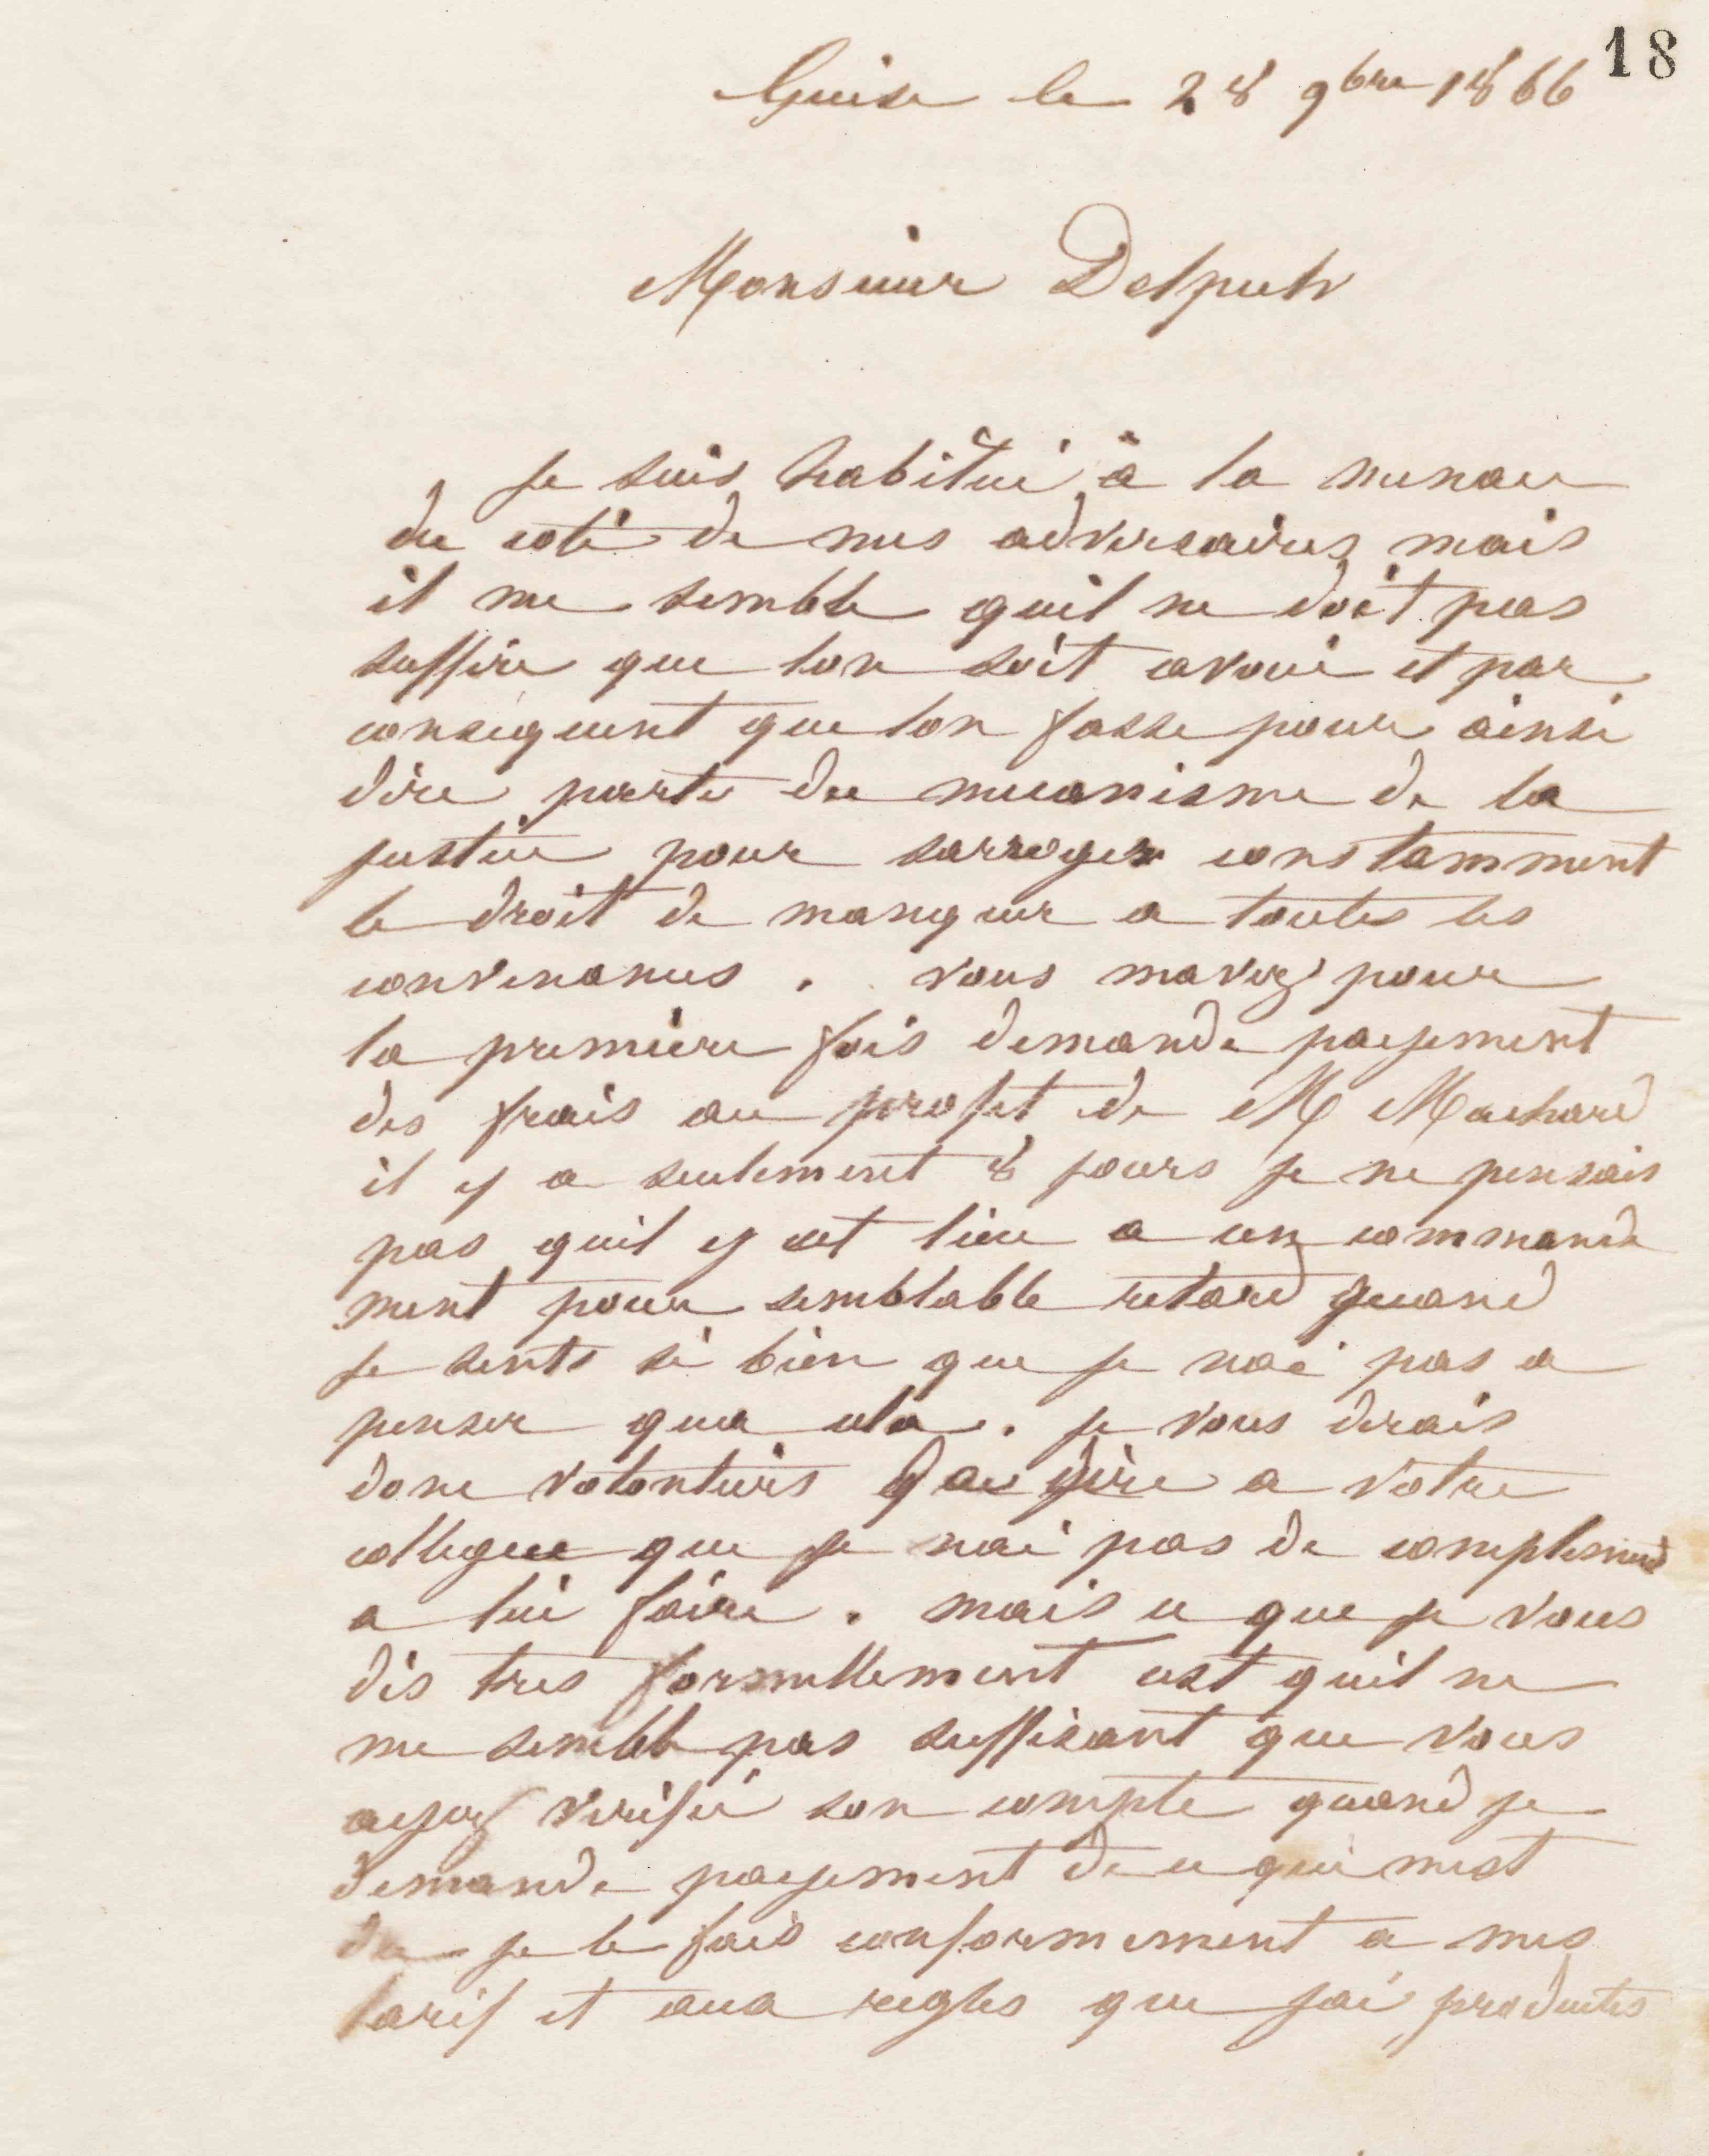 18
Guise le 28 9bre 1866
Monsieur Delpech
Je suis habitué à la menace
du coté de mes adversaires mais
il me semble quil ne doit pas
suffire que lon soit avoué et par
consequent que lon fasse pour ainsi
dire partie du mecanisme de la
justice pour sarroger constamment
le droit de manquer a toutes les
convenances. vous mavez pour
la premiere fois demande payement
des frais au profit de M Machard
il y a seulement 8 jours je ne pensais
pas quil y eut lieu a un commande
ment pour semblable retard quand
je sents si bien que je nai pas a
penser qua cela. je vous dirais
donc volontiers de dire a votre
collegue que je nai pas de compliment
a lui faire. mais ce que je vous
dis tres formellement cest quil ne
me semble pas suffisant que vous
ayez verifié son compte quand je
demande payement de ce qui mest
du je le fais conformement a mes
tarif et aux regles que jai produites